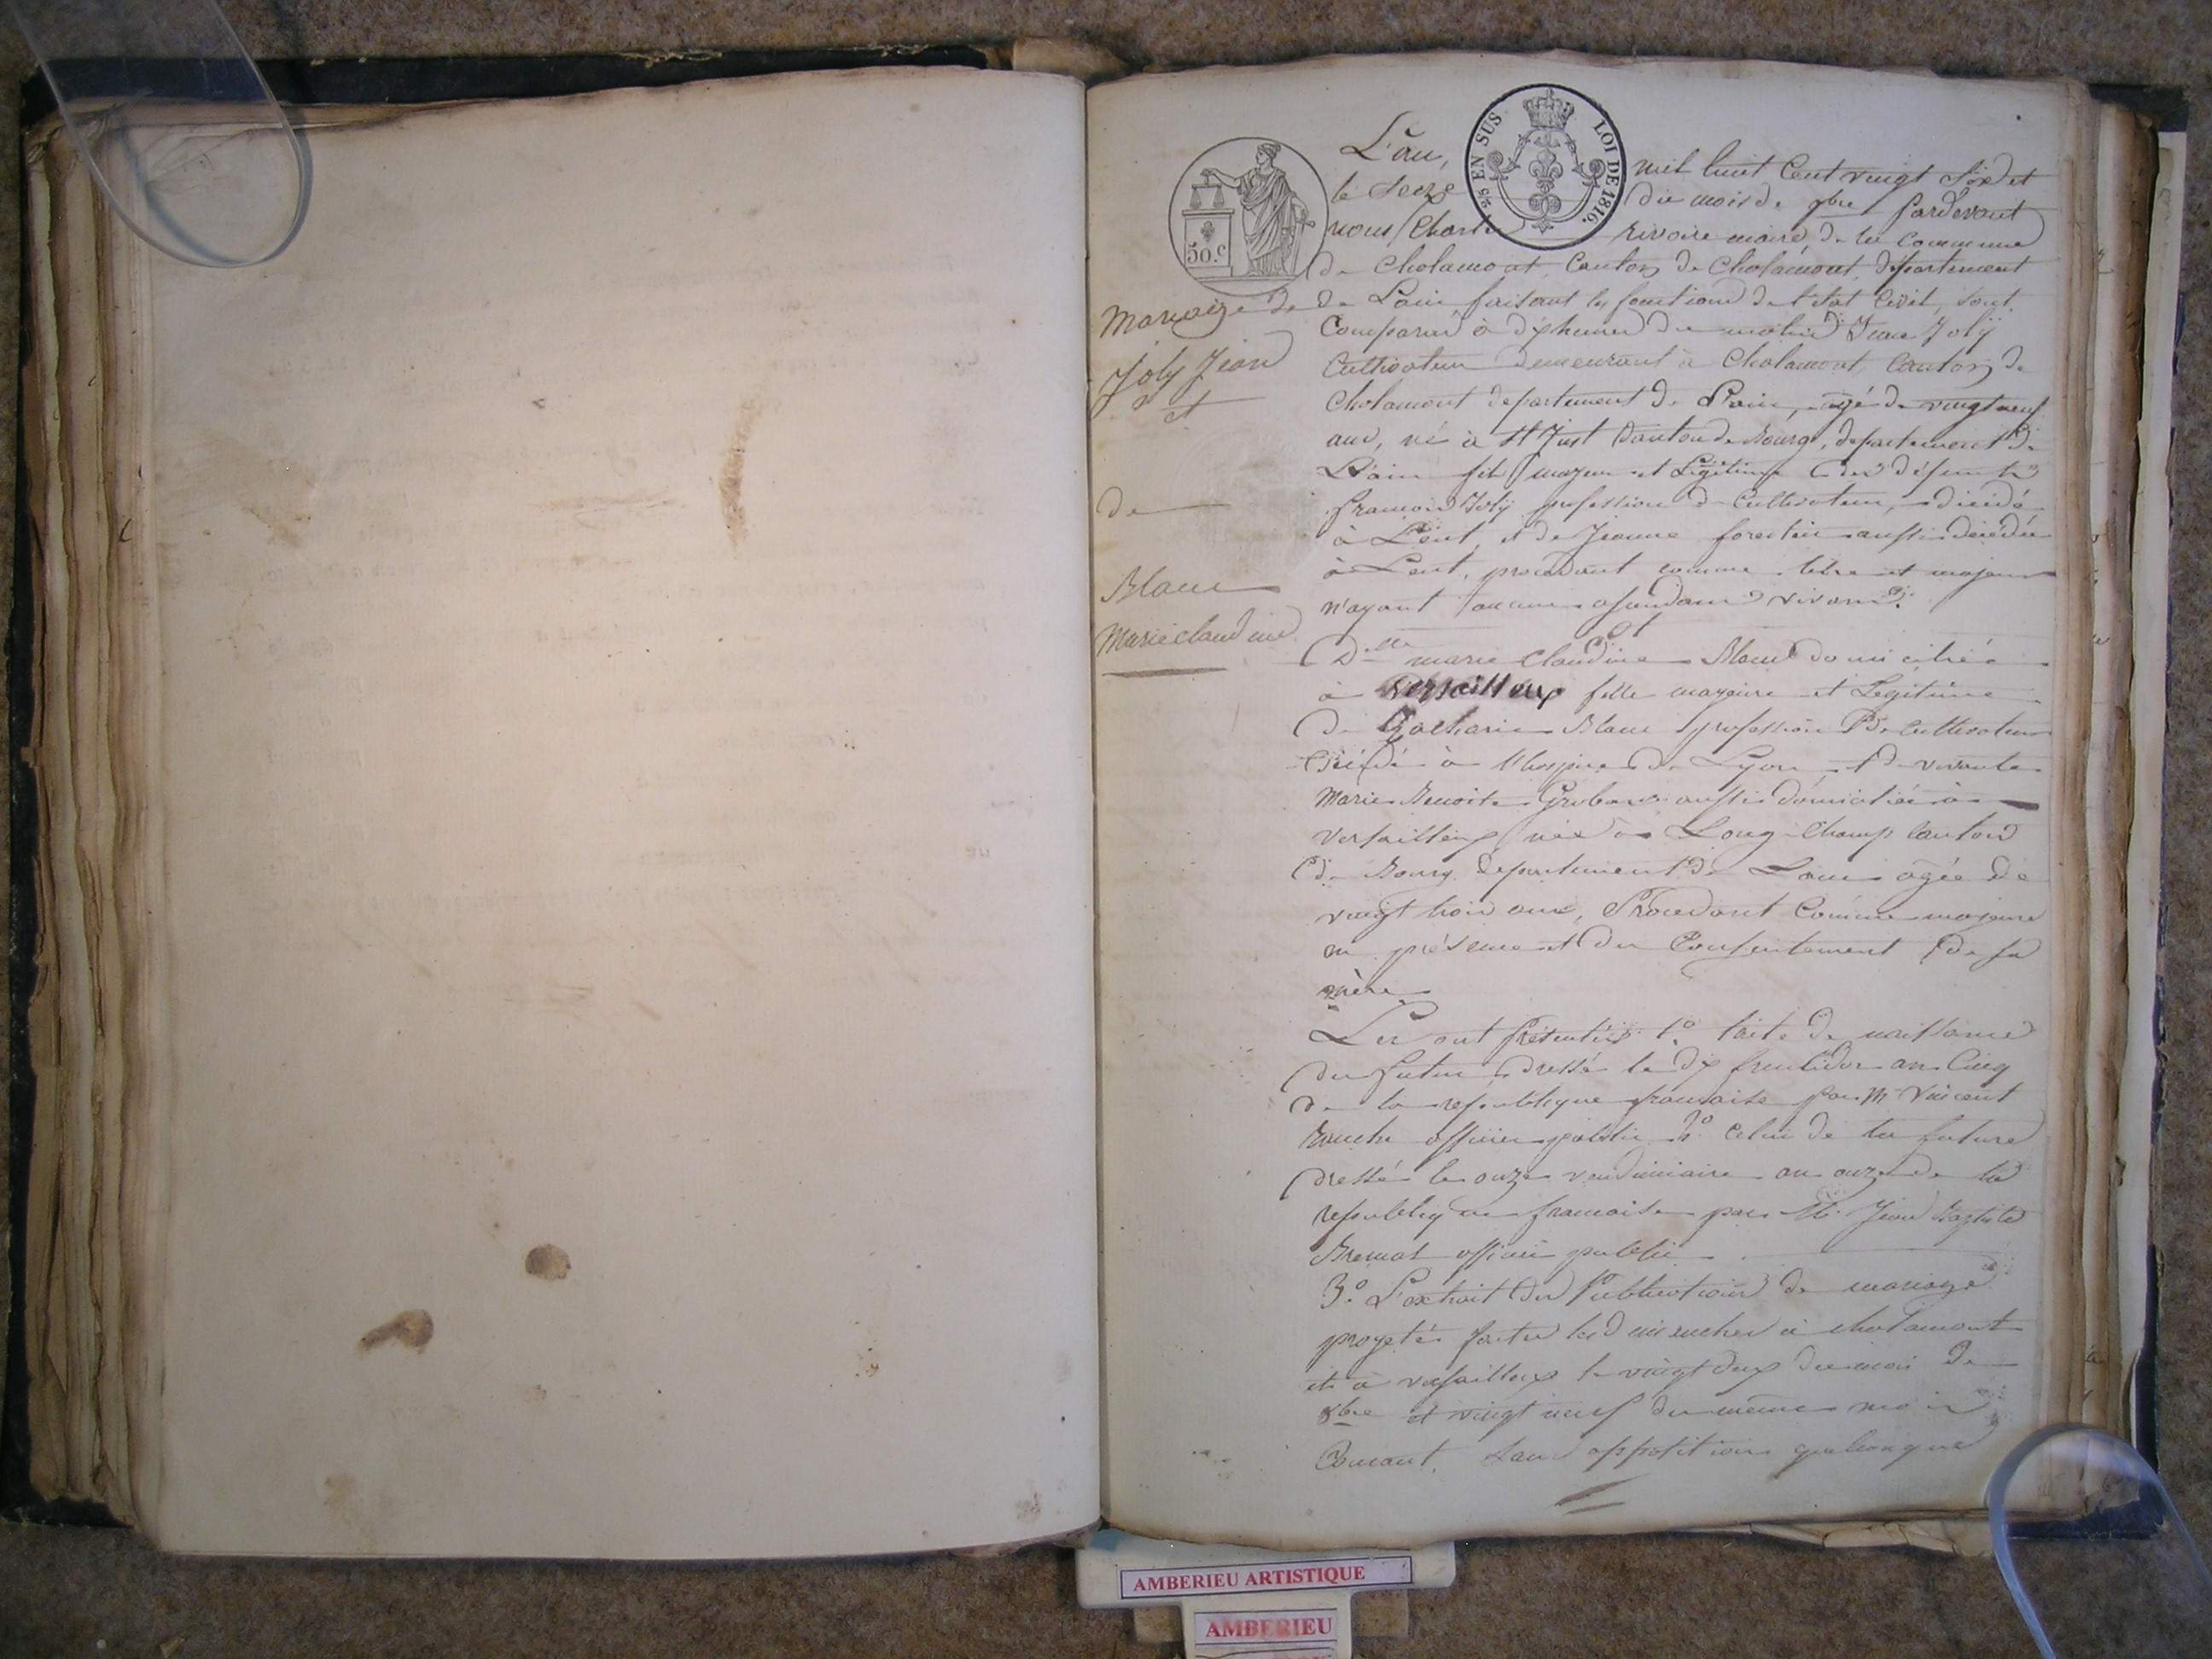 LOI DE 1816.
2/5 EN SUS
50.c
L'an, mil huit Cent vingt Six et
le Seize du mois de 9bre pardevant
nous Charles rivoire maire, de la Commune
de Cholamont, Canton de Cholamont, département
Mariage de
de L'ain faisant les fonctions de l'état Civil, sont
Comparus à dix heures du matin Jean Joly
Joly Jean
Cultivateur demeurant à Cholamont, Canton de
et
Cholamont departement de L'ain, agé de vingt neuf
ans, né à St Just Canton de Bourg, departement de
L'ain fils mayeur et Légitime des défunts
de
francois Joly profession de Cultivateur, décédé
à Lent, et de Jeanne forestier aussi décédée
à Lent, procédant comme libre et majeur
Blanc
n'ayant aucuns asendans vivans.
et
Marie claudine
Dlle marie Claudine Blanc domiciliée
à Versailleux fille mayeure et Legitime
de Zacharie Blanc profession De Cultivateur
décédé à l'hospice de Lyon et de vivante
Marie Benoite aussi domiciliée à
versailleux née à Long-Champ Canton
de Bourg département de Lain agée de
vingt trois ans, Procedant Comme majeure
en présence et du Consentement de sa
mère
Les ont présentés 1o l'acte de naissance
du futur dressé le dix fructidor an Cinq
de la republique francaise par Mr Vincent
officier public 2o Celui de la future
dressé le onze vendimiaire an onze de la
republique francaise par Mr Jean Baptiste
officier public
3.o L'extrait des Publications de mariage
progetés faites les dimenches à cholamont
et à versailleux le vingt deux du mois de
8bre et vingt neuf du même mois
Courant, sans oppositions quelconque
AMBERIEU ARTISTIQUE
AMBERIEU